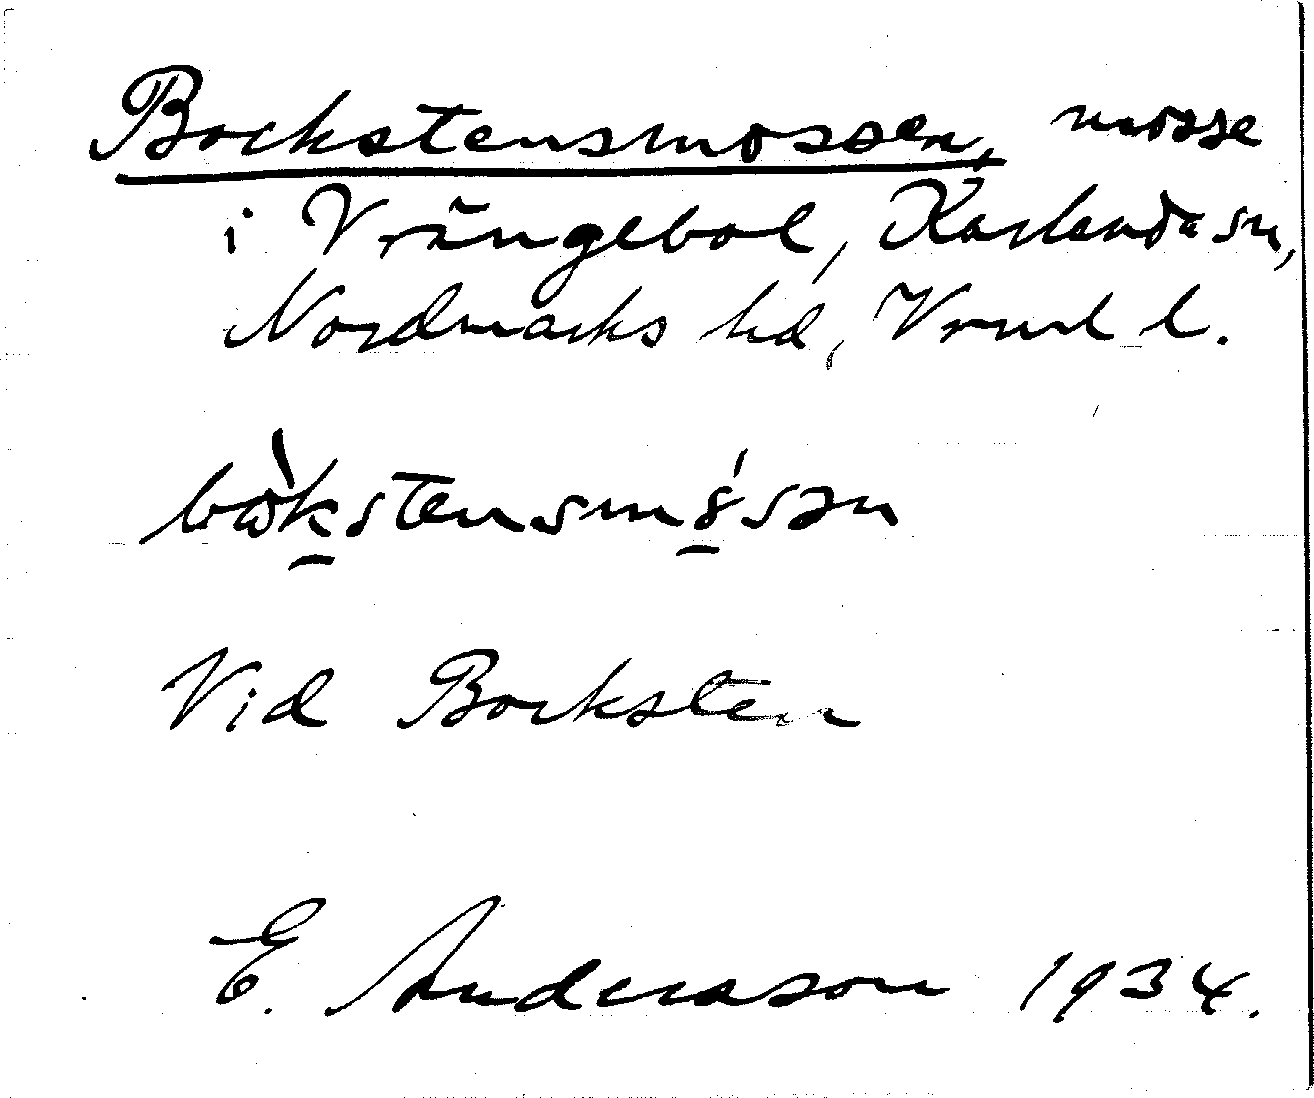 Bockstensmossen, mosse
i Vrångebol, Karlanda sn,
Nordmarks hd, Vrml l.
Vid Bocksten
E. Anderson 1934.